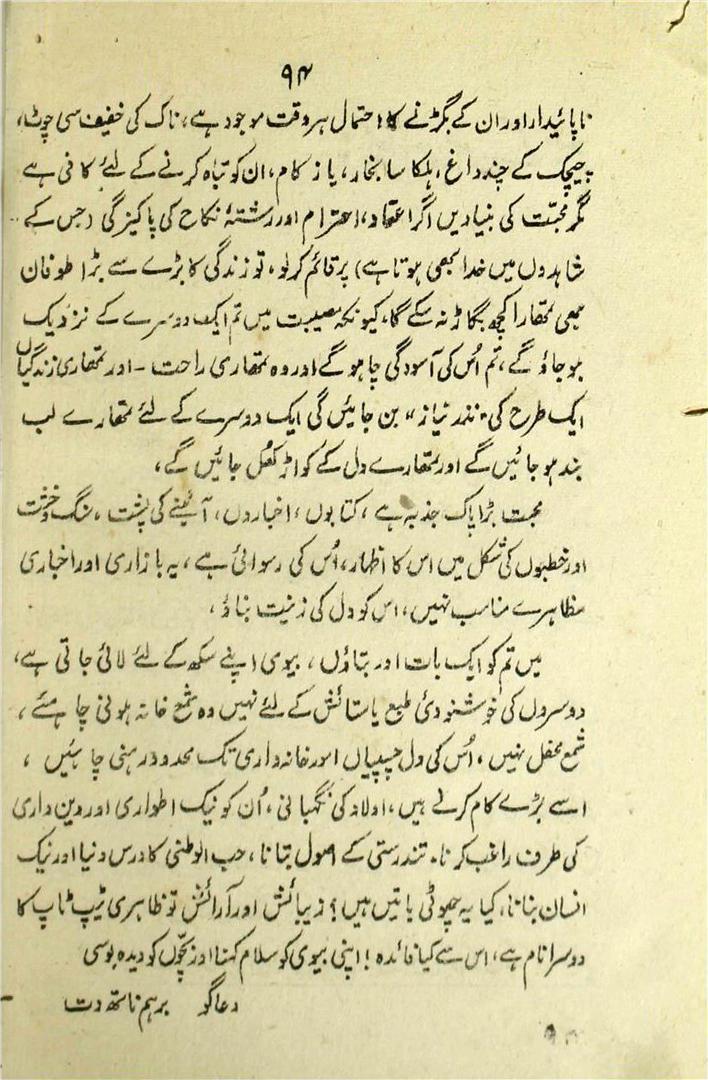 ۹۴
ناپائیدار اور ان کے بگڑنے کا احتمال ہر وقت موجود ہے، ناک کی خفیف سی چوٹ،
چیچک کے چند داغ، ہلکا سا بخار، یا زکام، ان کو تباہ کرنے کے لئے کافی ہے
مگر محبّت کی بنیادیں اگر اعتماد، احترام اور رشتۂ نکاح کی پاکیزگی (جس کے
شاہدوں میں خدا بھی ہوتا ہے) پر قائم کر لو، تو زندگی کا بڑے سے بڑا طوفان
بھی تمھارا کچھ بگاڑ نہ سکے گا، کیونکہ مصیبت میں تم ایک دوسرے کے نزدیک
ہو جاؤ گے، تم اُس کی آسودگی چاہو گے اور وہ تمھاری راحت - اور تمھاری زندگیاں
ایک طرح کی "نذر نیاز" بن جائیں گی ایک دوسرے کے لئے تمھارے لب
بند ہو جائیں گے اور تمھارے دل کے کواڑ کھُل جائیں گے،
محبت بڑا پاک جذبہ ہے، کتابوں، اخباروں، آئینے کی پشت، سنگ و خشت
اور خطبوں کی شکل میں اس کا اظہار، اُس کی رسوائی ہے، یہ بازاری اور اخباری
مظاہرے مناسب نہیں، اس کو دل کی زینت بناؤ،
میں تم کو ایک بات اور بتاؤں، بیوی اپنے سکھ کے لئے لائی جاتی ہے،
دوسروں کی خوشنودیٔ طبع یا ستائش کے لئے نہیں وہ شمع خانہ ہونی چاہئے،
شمع محفل نہیں، اُس کی دل چسپیاں امور خانہ داری تک محدود رہنی چاہئیں،
اسے بڑے کام کرنے ہیں، اولاد کی نگہبانی، اُن کو نیک اطواری اور دین داری
کی طرف راغب کرنا، تندرستی کے اصول بتانا، حب الوطنی کا درس دنیا اور نیک
انسان بنانا، کیا یہ چھوٹی باتیں ہیں؟ زیبائش اور آرائش تو ظاہری ٹیپ ٹاپ کا
دوسرا نام ہے، اس سے کیا فائدہ! اپنی بیوی کو سلام کہنا اور بچّوں کو دیدہ بوسی
دعاگو برہم ناتھ دت